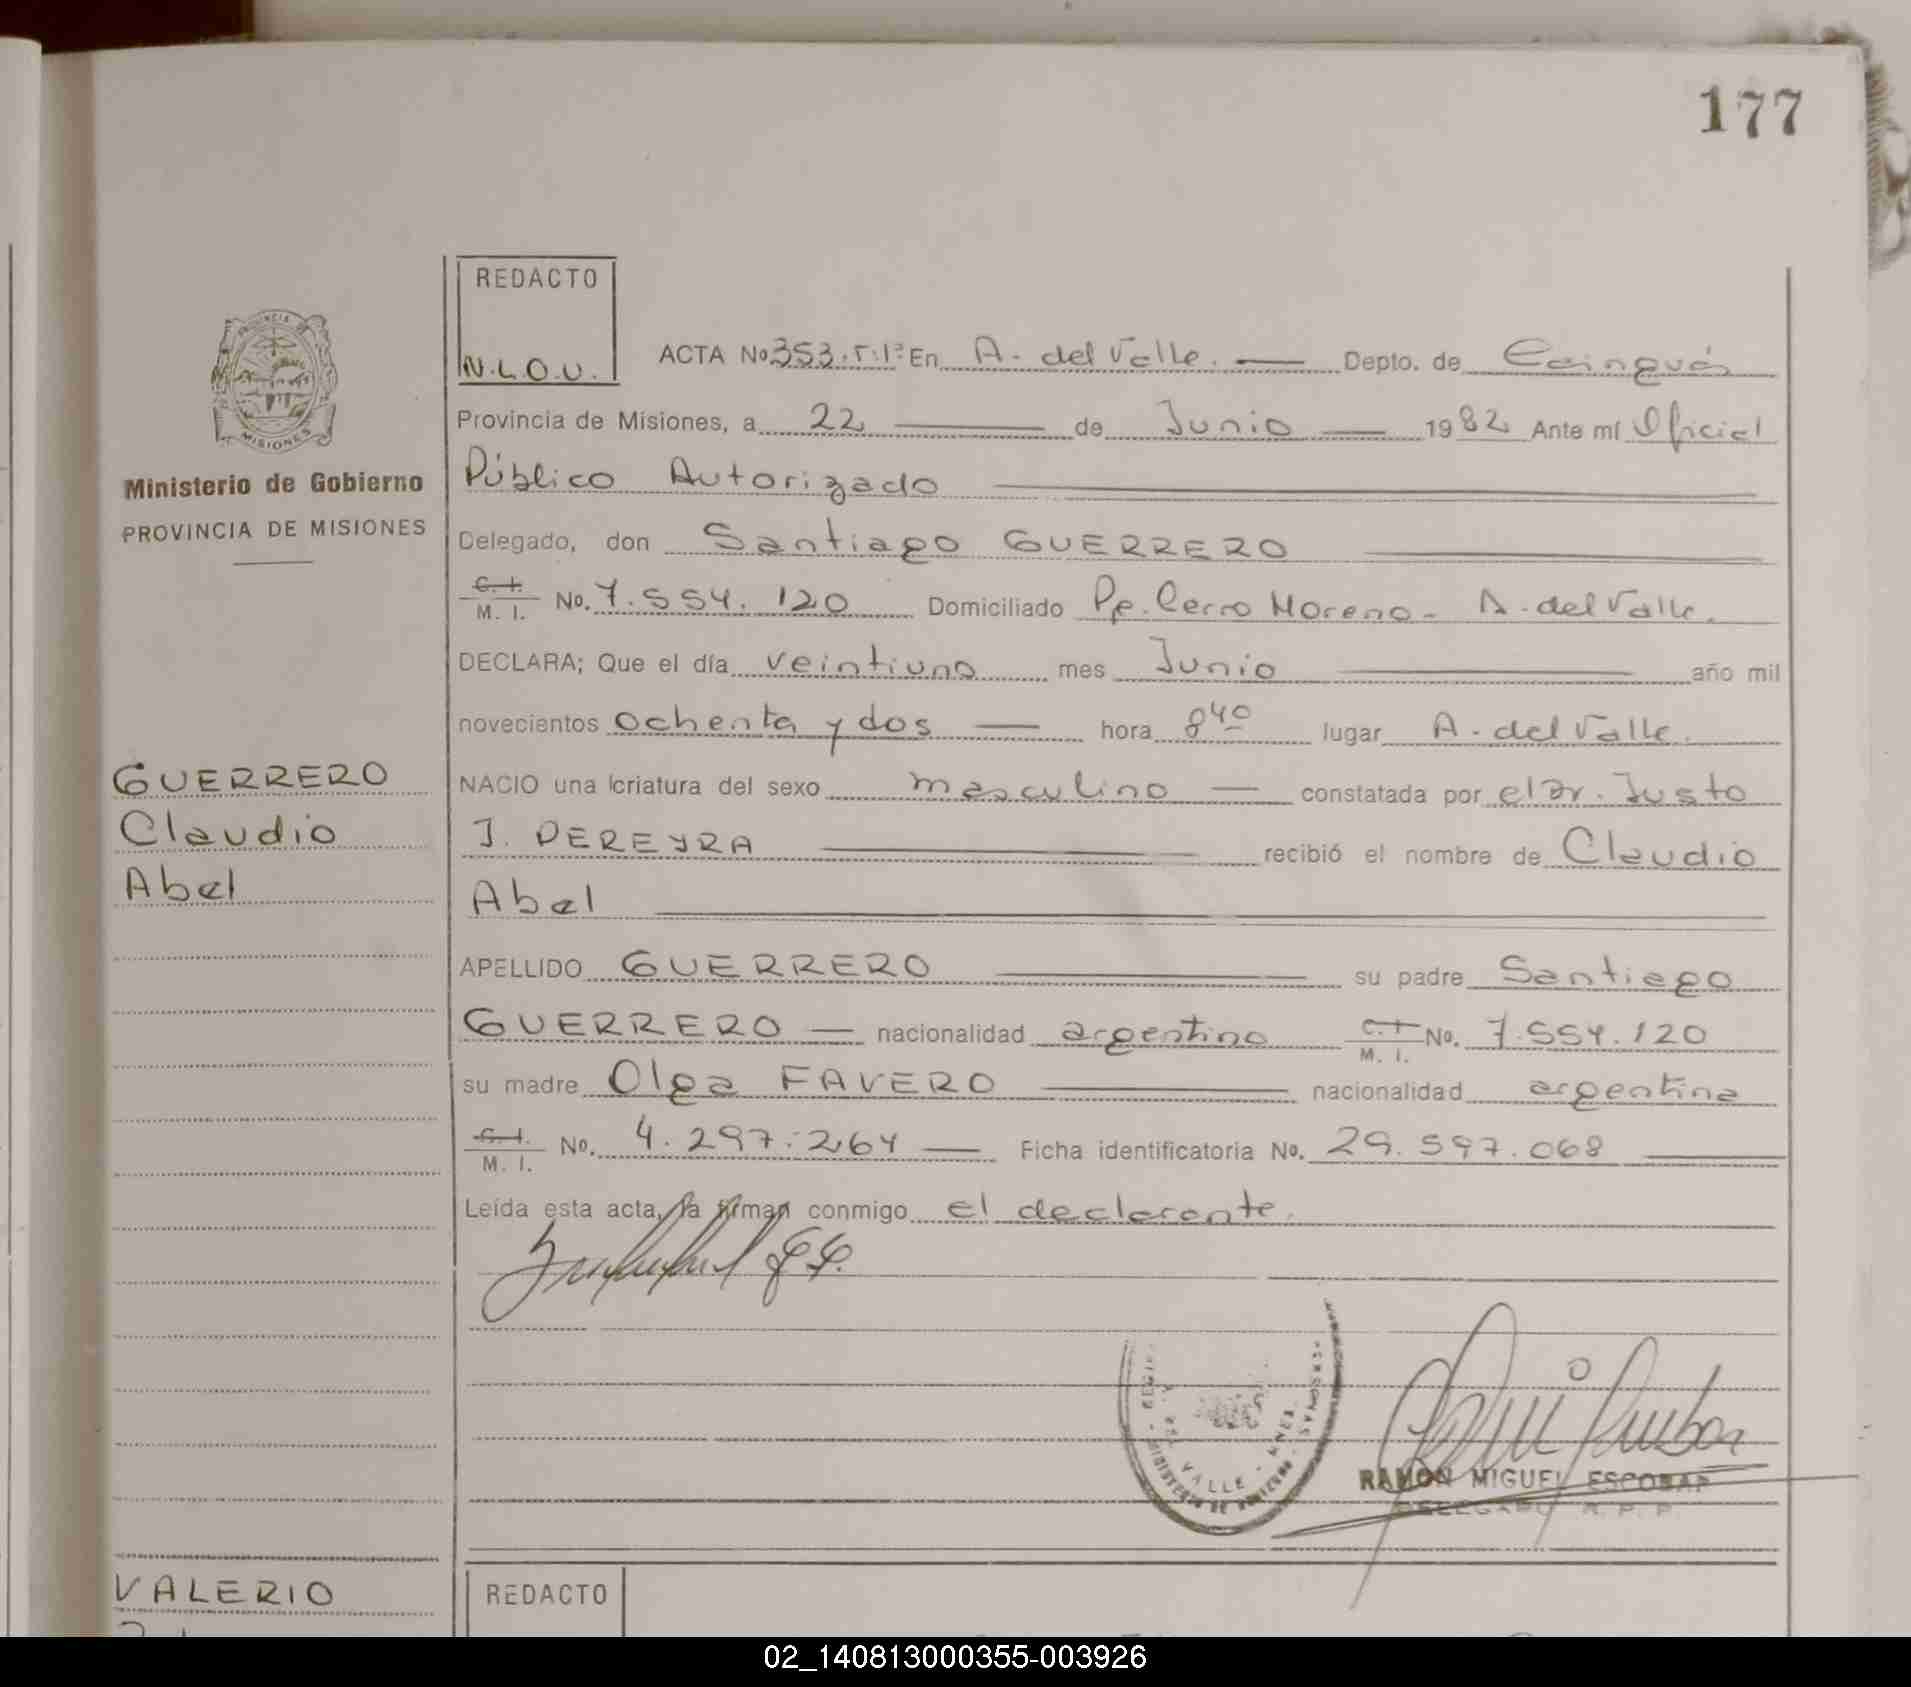 177
REDACTO
N.L.O.U.
ACTA No 353.T:1º En A. del Valle. Depto. de Cainguás
Provincia de Misiones, a 22 de Junio 1982 Ante mí Oficial
Público Autorizado
Delegado, don Santiago GUERRERO
C. I.
M. I. No. 7.554.120 Domiciliado Pje. Cerro Moreno - A. del Valle.
DECLARA; Que el día veintiuno mes Junio año mil
novecientos ochenta y dos hora 8 40 lugar A. del Valle.
NACIO una criatura del sexo masculino constatada por el Dr. Justo
J. PEREYRA recibió el nombre de Claudio
Abel
APELLIDO GUERRERO su padre Santiago
GUERRERO nacionalidad argentino C. I. M. I. No. 7.554.120
su madre Olga FAVERO nacionalidad argentina
C. I.
M. I. No. 4.297.264 Ficha identificatoria No. 29.597.068
Leída esta acta, la firman conmigo el declarante.
RAMON MIGUEL ESCOBAR
DELEGADO R. P. P.
PROVINCIA DE
MISIONES
Ministerio de Gobierno
PROVINCIA DE MISIONES
GUERRERO
Claudio
Abel
VALERIO
REDACTO
VALLE
MINISTERIO DE GOBIERNO
02_140813000355-003926